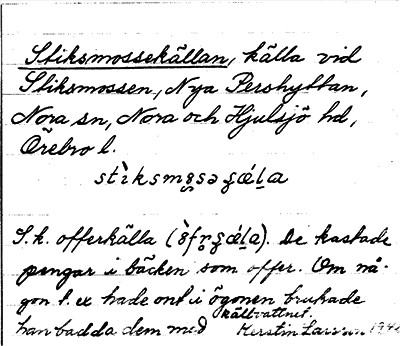 Stiksmossekällan, källa vid
Stiksmossen, Nya Pershyttan,
Nora sn, Nora och Hjulsjö hd,
Örebro l.
S. k. offerkälla. De kastade
pengar i bäcken som offer. Om nå-
gon t. ex hade ont i ögonen brukade
han badda dem med källvattnet.
Kerstin Larsson